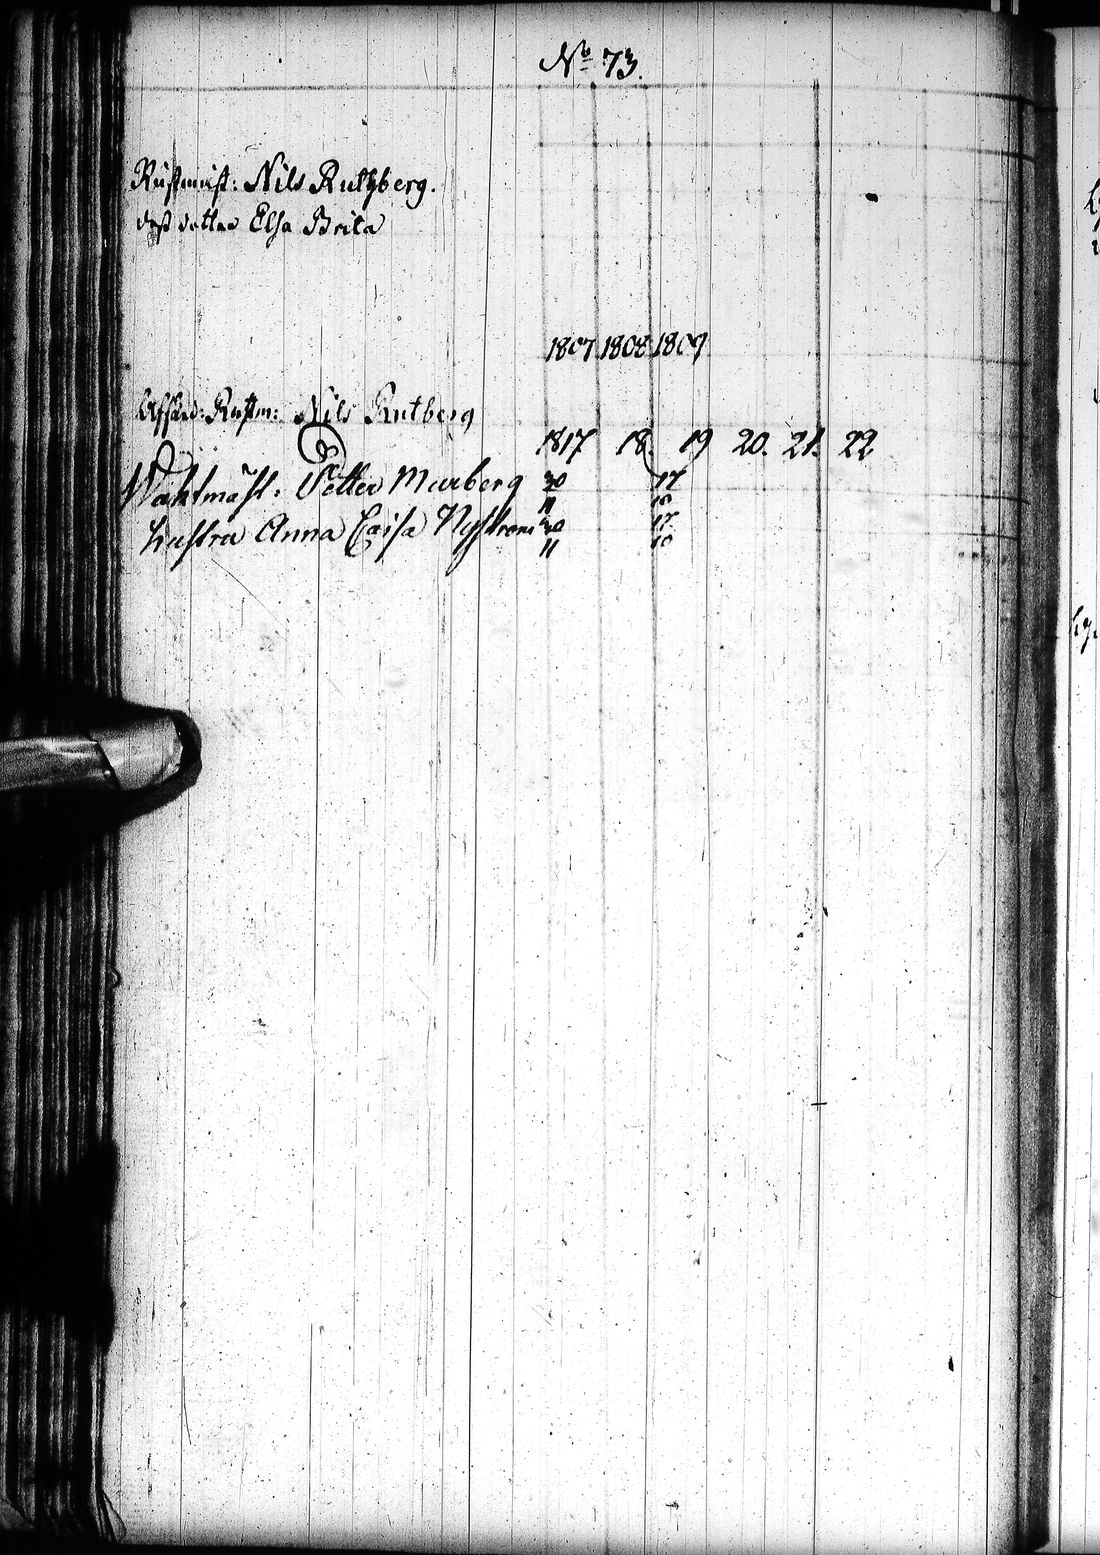 No 73.
Rustmäst: Nils Ruthberg.
dess dotter Elsa Brita
1807 1808 1809
Afsked: Rustm: Nils Rutberg
1817 18. 19 20. 21. 22
Waktmäst: Petter Murberg 30 17
11 10
hustru Anna Caisa Nyström 30 17
11 10